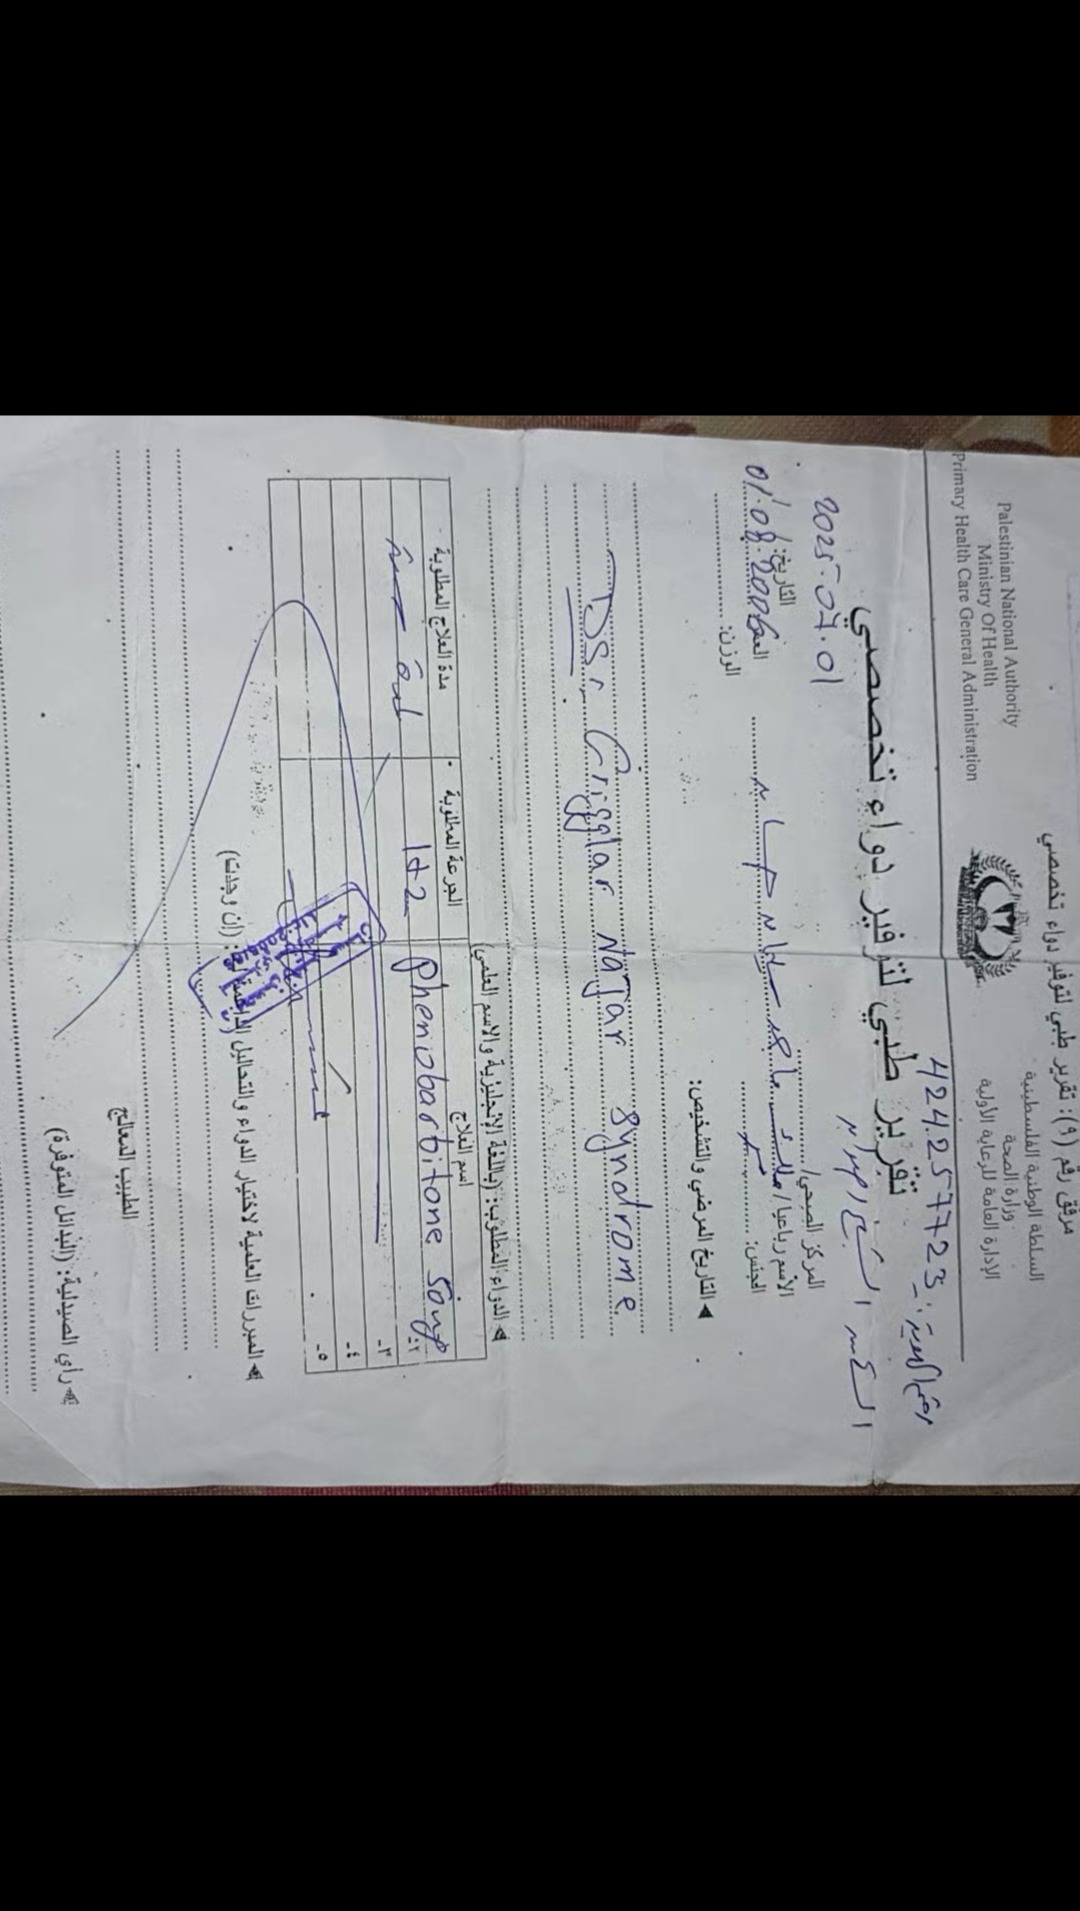 مرفق رقم (٩): تقرير طبي لتوفير دواء تخصصي
السلطة الوطنية الفلسطينية
وزارة الصحة
الإدارة العامة للرعاية الأولية
Palestinian National Authority
Ministry Of Health
Primary Health Care General Administration
رقم الهوية: 424257723
تقرير طبي لتوفير دواء تخصصي
2025-07.01
المركز الصحي/ التاريخ:
الأسم رباعيا/ ماجد 01.08.2006
الجنس: الوزن:
◄ التاريخ المرضي والتشخيص:
DS: Crigglar Najar syndrome
◄ الدواء المطلوب: (باللغة الإنجليزية والاسم العلمي)
اسم العلاج الجرعة المطلوبة مدة العلاج المطلوبة
٢- phenobarbitone 1+2
٣-
٤-
٥-
◄ المبررات العلمية لاختيار الدواء والتحاليل (إن وجدت)
الطبيب المعالج
◄ رأي الصيدلية: (البدائل المتوفرة)